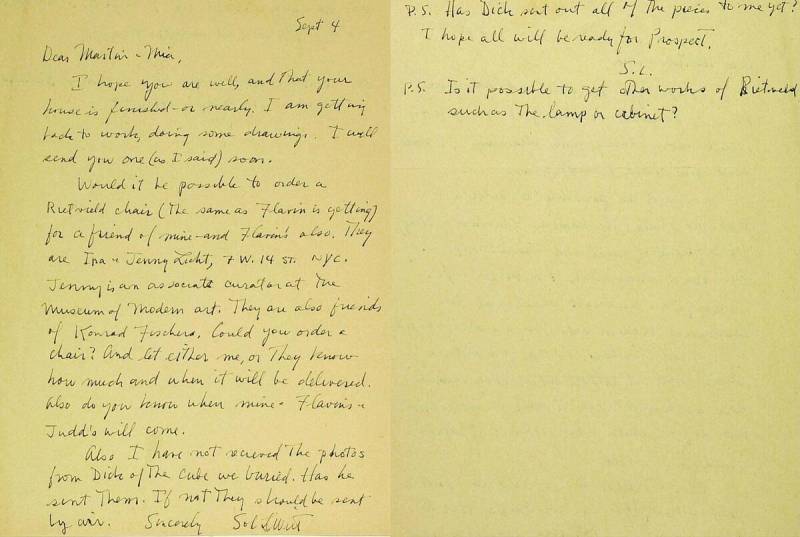 Sept 4
Dear Martin + Mia,
I hope you are well, and that your
house is finished - or nearly. I am getting
back to work, doing some drawings. I will
send you one (as I said) soon.
Would it be possible to order a
Rietvield chair (the same as Flavin is getting)
for a friend of mine - and Flavin's also. They
are Ira + Jenny Licht, 7 W. 14 St. NYC.
Jenny is an associate curator at the
Museum of Modern art. They are also friends
of Konrad Fischers. Could you order a
chair? And let either me, or they know
how much and when it will be delivered.
Also do you know when mine + Flavin's +
Judd's will come.
Also I have not recieved the photos
from Dick of the cube we buried. Has he
sent them. If not they should be sent
by air. Sincerely Sol LeWitt
P.S. Has Dick sent out all of the pieces to me yet?
I hope all will be ready for Prospect.
S.L.
P.S. Is it possible to get other works of Rietvield
such as the lamp or cabinet?